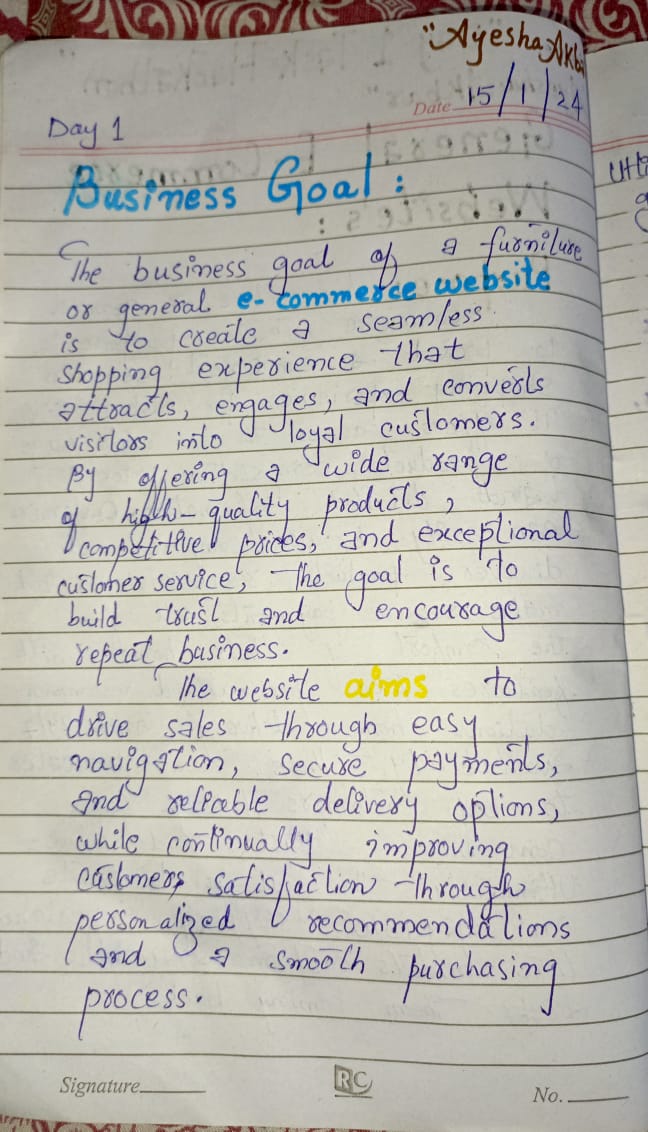 "Ayesha Akb
Date 15/1/24
Day 1
Business Goal :
The business goal of a furniture
or general e-commerce website
is to create a seamless
shopping experience that
attracts, engages, and converts
visitors into loyal customers.
By offering a wide range
of high-quality products,
competitive prices, and exceptional
customer service, the goal is to
build trust and encourage
repeat business.
The website aims to
drive sales through easy
navigation, secure payments,
and reliable delivery options,
while continually improving
customers satisfaction through
personalized recommendations
and a smooth purchasing
process.
Signature
RC
No.